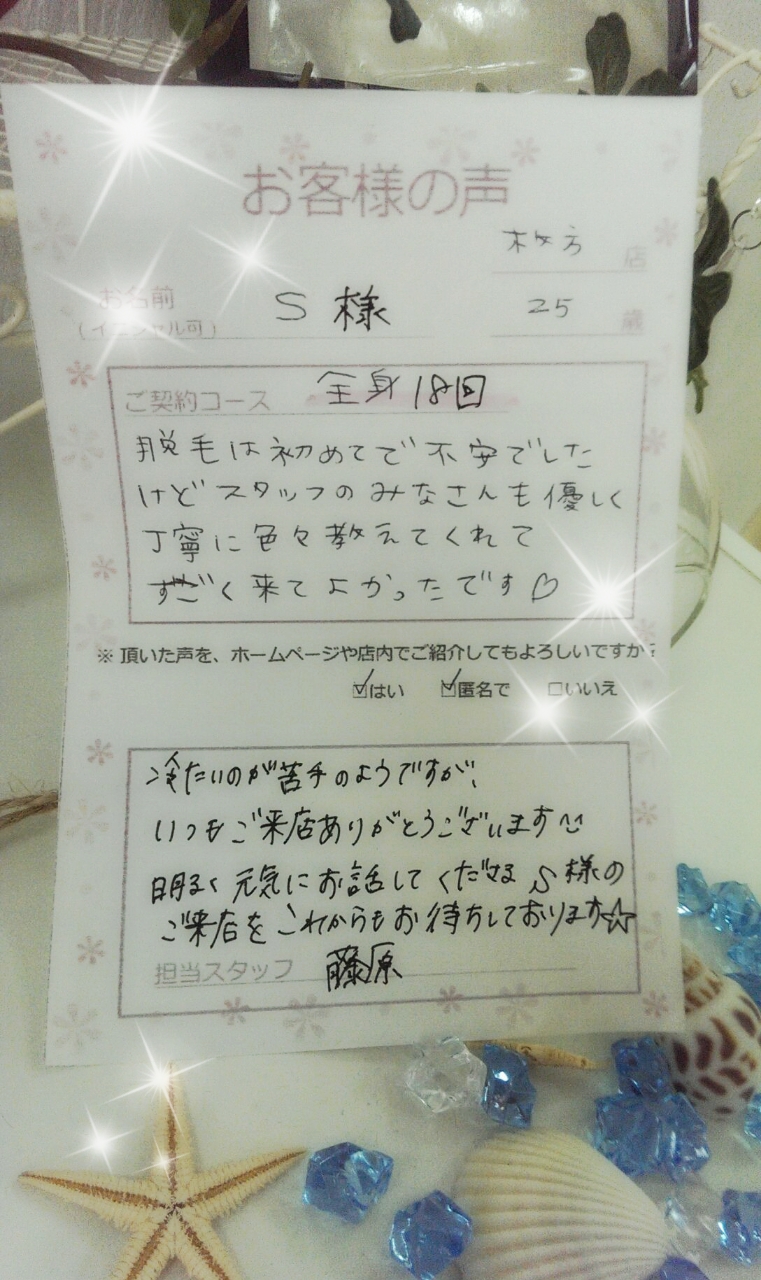 お客様の声
枚方 店
お名前 S 様 25 歳
(イニシャル可)
ご契約コース 全身18回
脱毛は初めてで不安でした
けどスタッフのみなさんも優しく
丁寧に色々教えてくれて
すごく来てよかったです♡
※頂いた声を、ホームページや店内でご紹介してもよろしいですか?
☑はい ☑匿名で □いいえ
冷たいのが苦手のようですが、
いつもご来店ありがとうございます
明るく元気にお話してくださるS様の
ご来店をこれからもお待ちしております☆
担当スタッフ 藤原